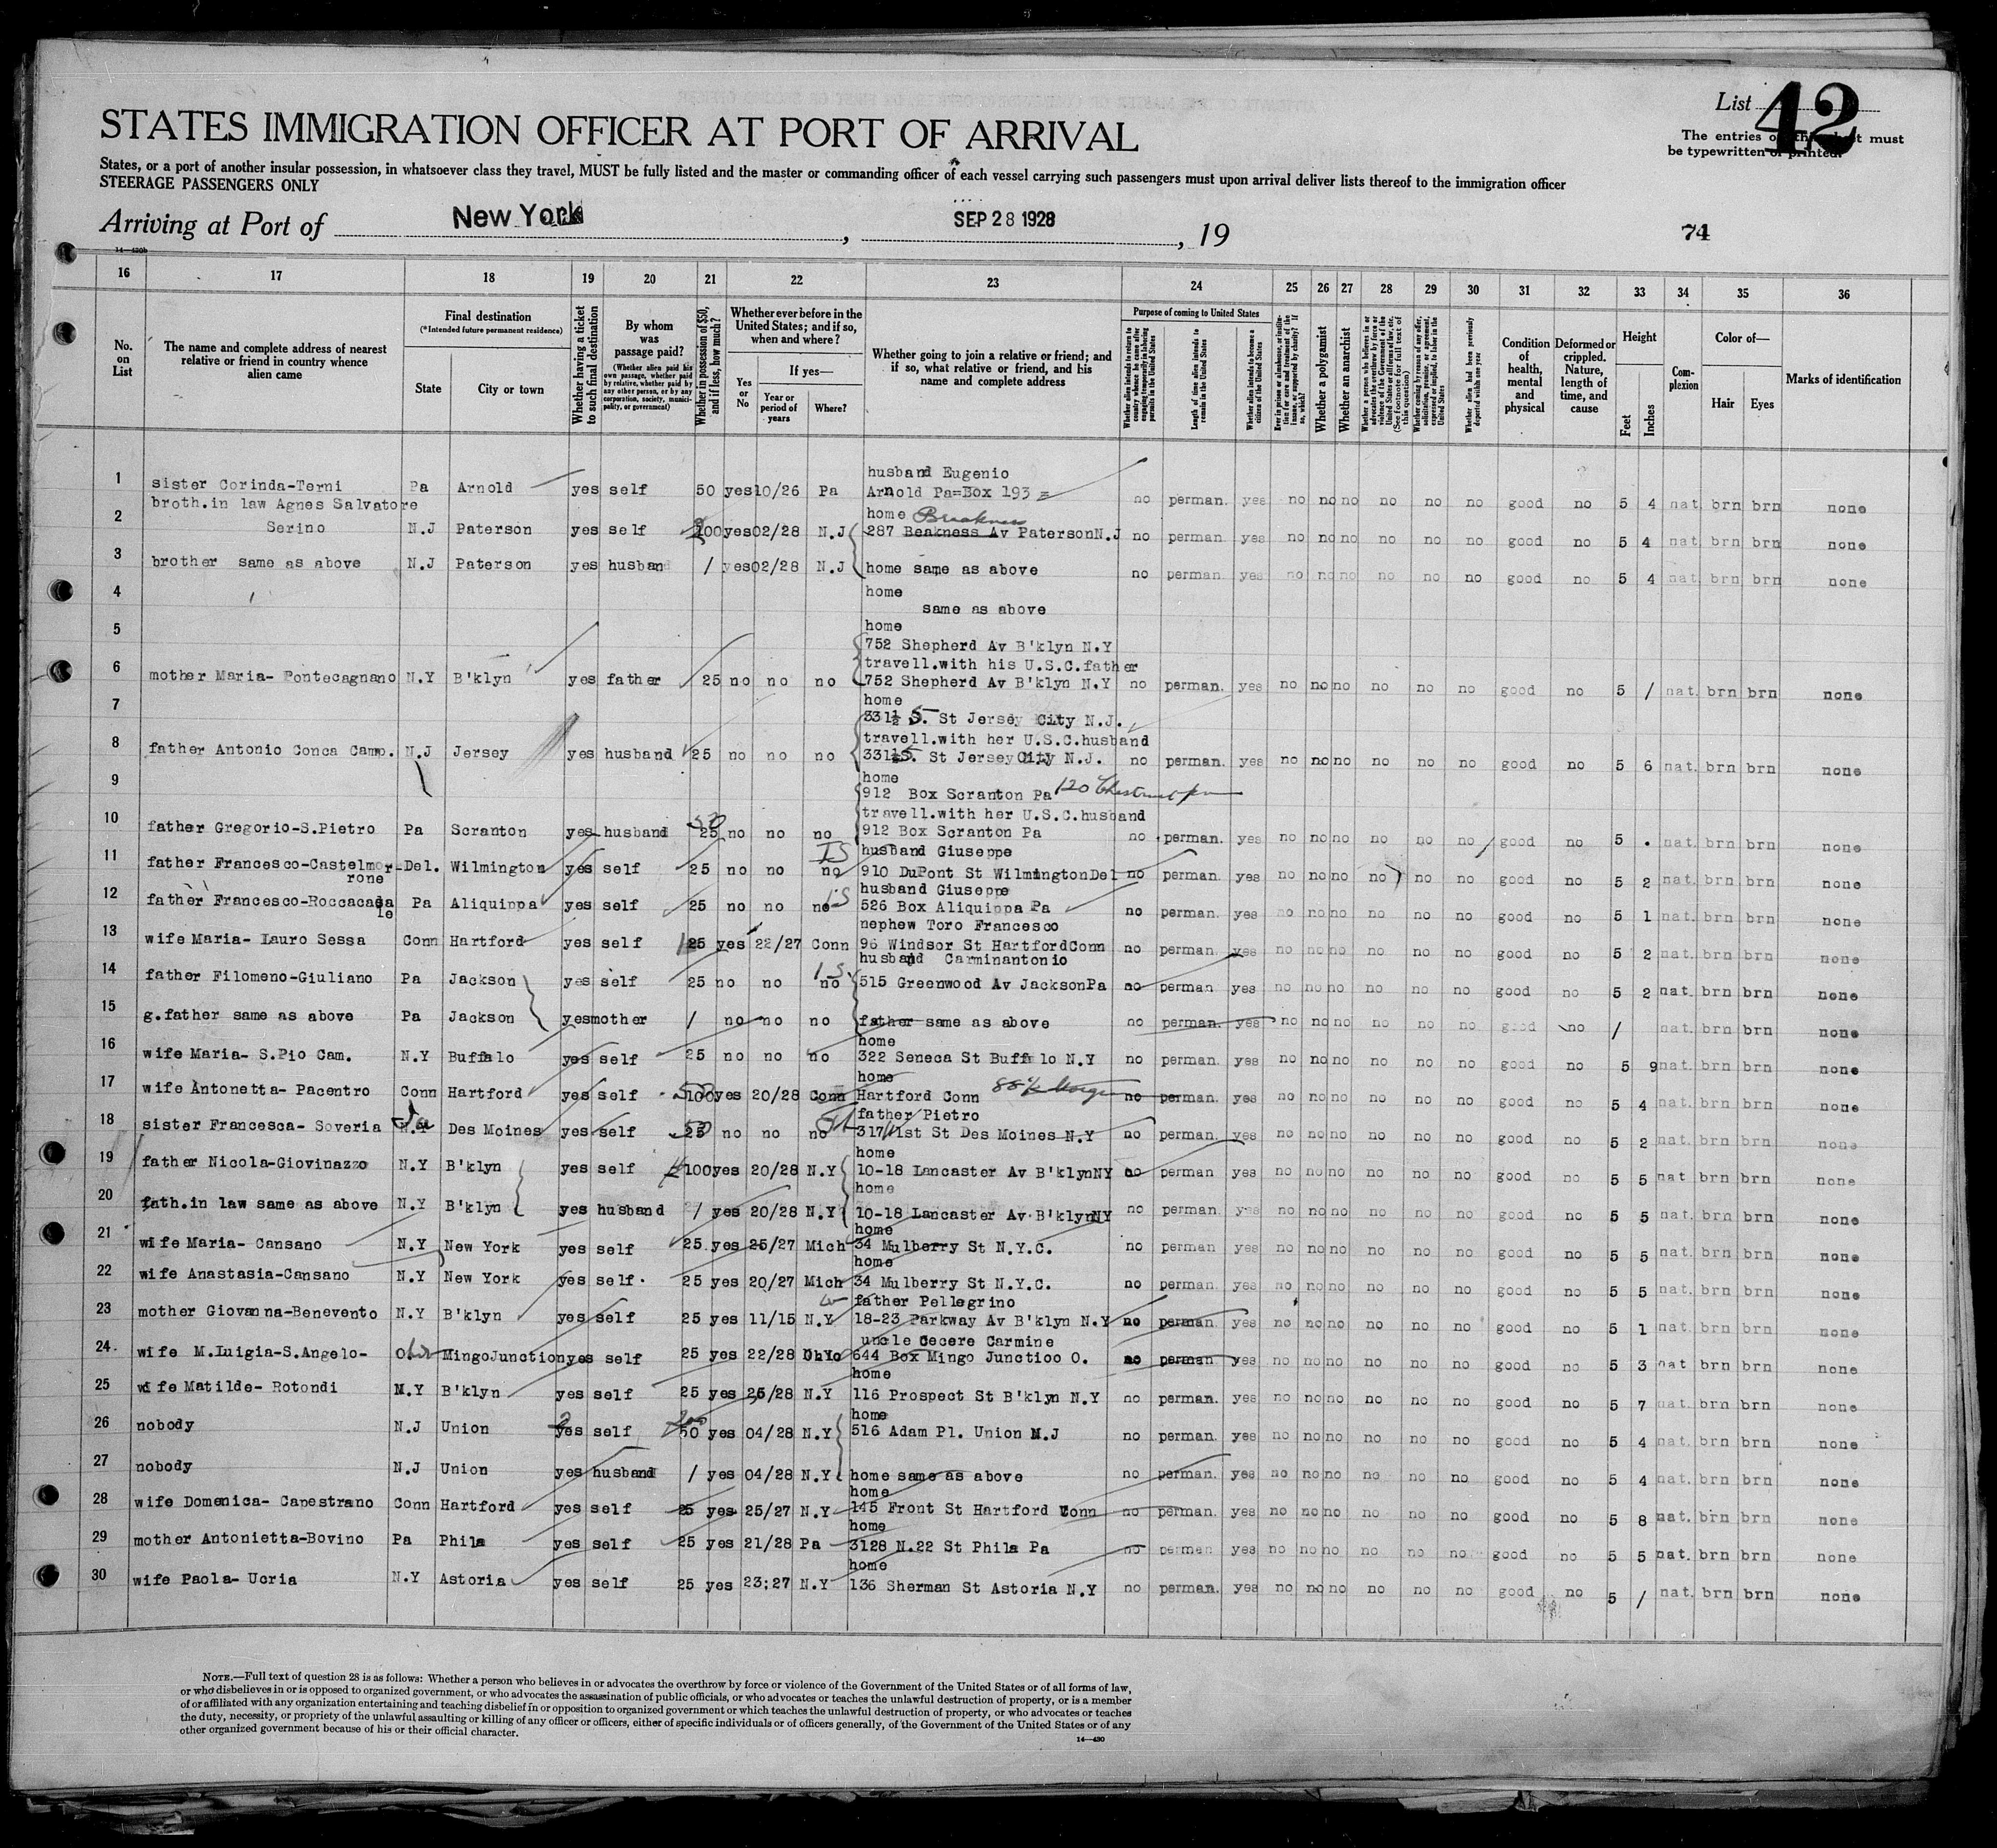 List 42
The entries on this sheet must
be typewritten or printed.
STATES IMMIGRATION OFFICER AT PORT OF ARRIVAL
States, or a port of another insular possession, in whatsoever class they travel, MUST be fully listed and the master or commanding officer of each vessel carrying such passengers must upon arrival deliver lists thereof to the immigration officer
STEERAGE PASSENGERS ONLY
Arriving at Port of New York, SEP 28 1928, 19
74
14—430b
16 17 18 19 20 21 22 23 24 25 26 27 28 29 30 31 32 33 34 35 36
No. on List
The name and complete address of nearest relative or friend in country whence alien came
Final destination
(*Intended future permanent residence)
State
City or town
Whether having a ticket to such final destination
By whom was passage paid?
(Whether alien paid his own passage, whether paid by relative, whether paid by any other person, or by any corporation, society, municipality, or government)
Whether in possession of $50, and if less, how much?
Whether ever before in the United States; and if so, when and where?
Yes or No
If yes—
Year or period of years
Where?
Whether going to join a relative or friend; and if so, what relative or friend, and his name and complete address
Purpose of coming to United States
Length of time alien intends to remain in the United States
Whether alien intends to become a citizen of the United States
Whether a polygamist
Whether an anarchist
Whether alien had been previously deported within one year
Condition of health, mental and physical
Deformed or crippled. Nature, length of time, and cause
Height
Feet
Inches
Complexion
Color of—
Hair
Eyes
Marks of identification
1 sister Corinda-Terni Pa Arnold yes self 50 yes 10/26 Pa husband Eugenio
Arnold Pa=Box 193 = no perman. yes no no no no no no good no 5 4 nat brn brn none
2 broth.in law Agnes Salvatore
Serino N.J Paterson yes self 100 yes 02/28 N.J home
287 Beakness Av Paterson N.J no perman yes no no no no no no good no 5 4 nat brn brn none
3 brother same as above N.J Paterson yes husband / yes 02/28 N.J home same as above no perman yes no no no no no no good no 5 4 nat brn brn none
4 home
same as above
5 home
752 Shepherd Av B'klyn N.Y
6 mother Maria- Pontecagnano N.Y B'klyn yes father 25 no no no travell.with his U.S.C.father
752 Shepherd Av B'klyn N.Y no perman. yes no no no no no no good no 5 / nat. brn brn none
7 home
331½ 5. St Jersey City N.J.
8 father Antonio Conca Camp. N.J Jersey yes husband 25 no no no travell.with her U.S.C.husband
331½ 5. St Jersey City N.J. no perman. yes no no no no no no good no 5 6 nat. brn brn none
9 home
912 Box Scranton Pa 120 Chestnut
10 father Gregorio-S.Pietro Pa Scranton yes husband 50 25 no no no travell.with her U.S.C.husband
912 Box Scranton Pa no perman. yes no no no no no no good no 5 . nat. brn brn none
11 father Francesco-Castelmor-
rone Del. Wilmington yes self 25 no no no husband Giuseppe
910 DuPont St Wilmington Del no perman. yes no no no no no no good no 5 2 nat. brn brn none
12 father Francesco-Roccacasa
le Pa Aliquippa yes self 25 no no no husband Giuseppe
526 Box Aliquippa Pa no perman. yes no no no no no no good no 5 1 nat. brn brn none
13 wife Maria- Lauro Sessa Conn Hartford yes self 25 yes 22/27 Conn nephew Toro Francesco
96 Windsor St Hartford Conn no perman. yes no no no no no no good no 5 2 nat. brn brn none
14 father Filomeno-Giuliano Pa Jackson yes self 25 no no no husband Carminantonio
515 Greenwood Av Jackson Pa no perman yes no no no no no no good no 5 2 nat. brn brn none
15 g.father same as above Pa Jackson yes mother / no no no father same as above no perman. yes no no no no no no good no / nat. brn brn none
16 wife Maria- S.Pio Cam. N.Y Buffalo yes self 25 no no no home
322 Seneca St Buffalo N.Y no perman. yes no no no no no no good no 5 9 nat. brn brn none
17 wife Antonetta- Pacentro Conn Hartford yes self 100 yes 20/28 Conn home
Hartford Conn no perman. yes no no no no no no good no 5 4 nat. brn brn none
18 sister Francesca- Soveria N.Y Des Moines yes self 50 25 no no no father Pietro
317 1st St Des Moines N.Y no perman. yes no no no no no no good no 5 2 nat. brn brn none
19 father Nicola-Giovinazzo N.Y B'klyn yes self 100 yes 20/28 N.Y home
10-18 Lancaster Av B'klyn NY no perman yes no no no no no no good no 5 5 nat brn brn none
20 fath.in law same as above N.Y B'klyn yes husband / yes 20/28 N.Y home
10-18 Lancaster Av B'klyn NY no perman. yes no no no no no no good no 5 5 nat. brn brn none
21 wife Maria- Cansano N.Y New York yes self 25 yes 25/27 Mich home
34 Mulberry St N.Y.C. no perman yes no no no no no no good no 5 5 nat. brn brn none
22 wife Anastasia-Cansano N.Y New York yes self. 25 yes 20/27 Mich home
34 Mulberry St N.Y.C. no perman. yes no no no no no no good no 5 5 nat. brn brn none
23 mother Giovanna-Benevento N.Y B'klyn yes self 25 yes 11/15 N.Y father Pellegrino
18-23 Parkway Av B'klyn N.Y no perman. yes no no no no no no good no 5 1 nat. brn brn none
24. wife M.Luigia-S.Angelo- Mingo Junction yes self 25 yes 22/28 Ohio uncle Cecere Carmine
644 Box Mingo Junctioo O. no perman yes no no no no no no good no 5 3 nat brn brn none
25 wife Matilde- Rotondi N.Y B'klyn yes self 25 yes 26/28 N.Y home
116 Prospect St B'klyn N.Y no perman. yes no no no no no no good no 5 7 nat. brn brn none
26 nobody N.J Union yes self 50 yes 04/28 N.Y home
516 Adam Pl. Union N.J no perman. yes no no no no no no good no 5 4 nat. brn brn none
27 nobody N.J Union yes husband / yes 04/28 N.Y home same as above no perman. yes no no no no no no good no 5 4 nat. brn brn none
28 wife Domenica- Capestrano Conn Hartford yes self 25 yes 25/27 N.Y home
145 Front St Hartford Conn no perman. yes no no no no no no good no 5 8 nat. brn brn none
29 mother Antonietta-Bovino Pa Phila yes self 25 yes 21/28 Pa home
3128 N.22 St Phila Pa no perman yes no no no no no no good no 5 5 nat. brn brn none
30 wife Paola- Ucria N.Y Astoria yes self 25 yes 23:27 N.Y home
136 Sherman St Astoria N.Y no perman. yes no no no no no no good no 5 / nat. brn brn none
NOTE.—Full text of question 28 is as follows: Whether a person who believes in or advocates the overthrow by force or violence of the Government of the United States or of all forms of law,
or who disbelieves in or is opposed to organized government, or who advocates the assassination of public officials, or who advocates or teaches the unlawful destruction of property, or is a member
of or affiliated with any organization entertaining and teaching disbelief in or opposition to organized government or which teaches the unlawful destruction of property, or who advocates or teaches
the duty, necessity, or propriety of the unlawful assaulting or killing of any officer or officers, either of specific individuals or of officers generally, of the Government of the United States or of any
other organized government because of his or their official character.
14—430